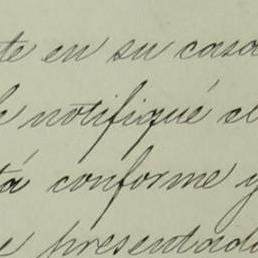 te en su casa
le notifiqué el
tá conforme y
e presentado